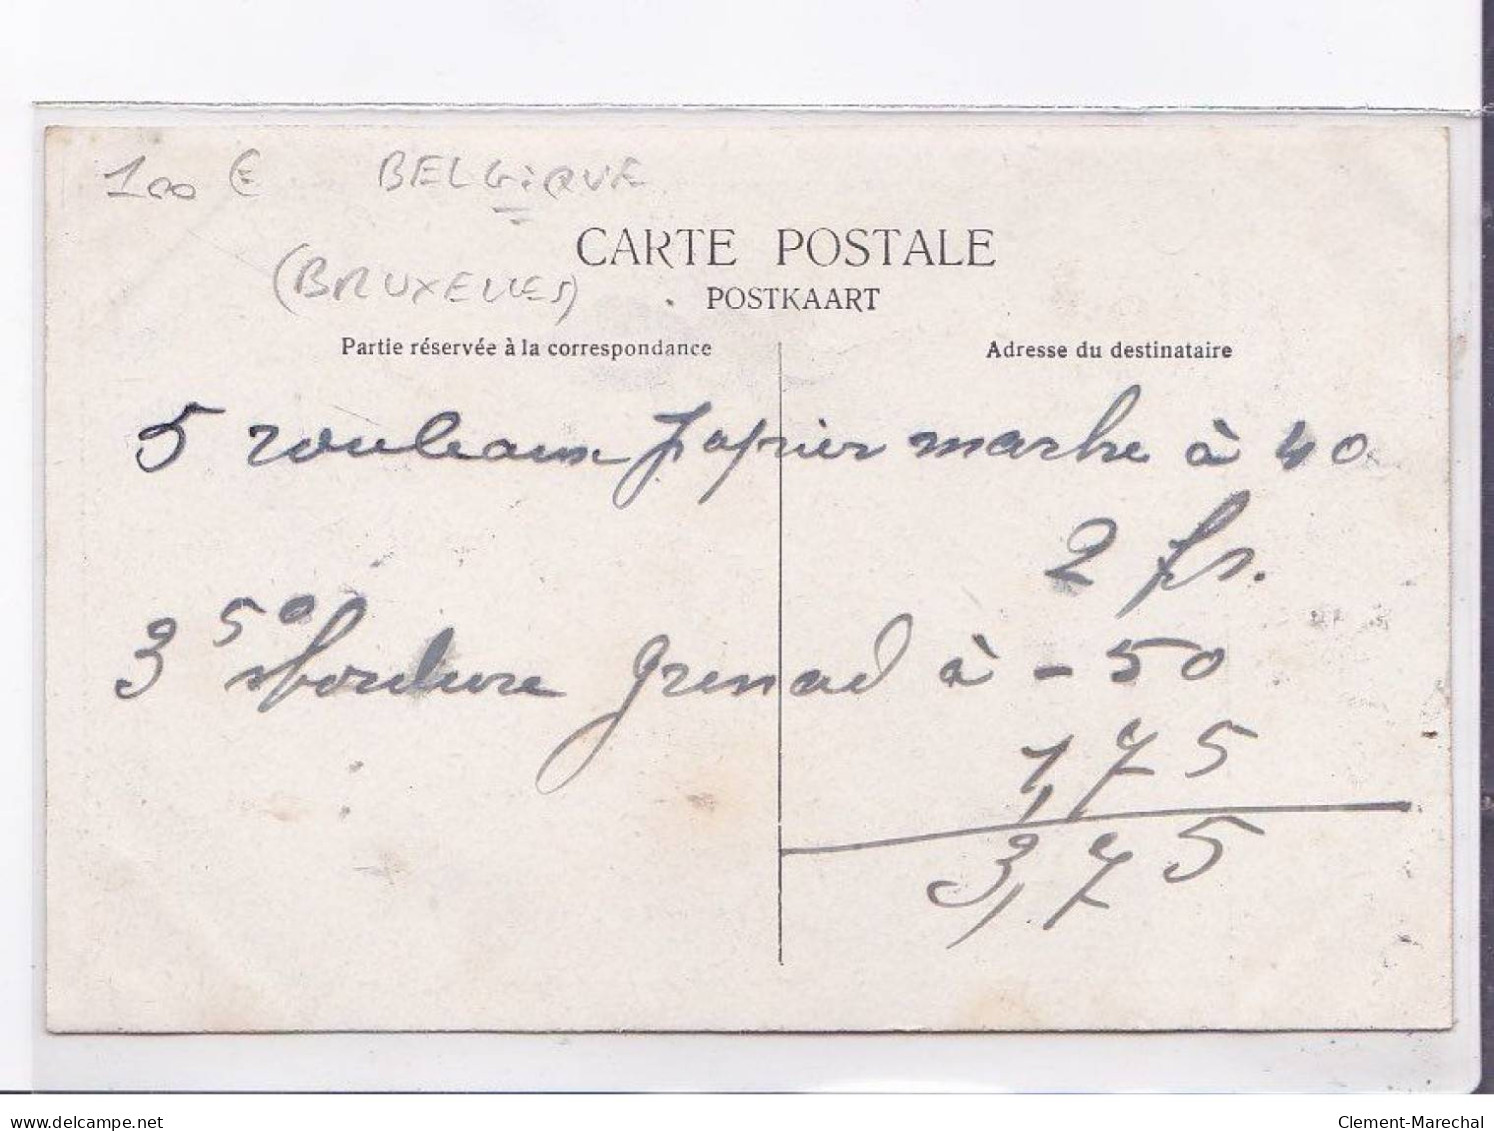 100 € BELGIQUE
(BRUXELLES)
CARTE POSTALE
POSTKAART
Partie réservée à la correspondance
Adresse du destinataire
5 rouleaux papier marbre à 40
2 fr.
3 50 bordure grenad à - 50
1,75
3,75
www.delcampe.net
Clement-Marechal